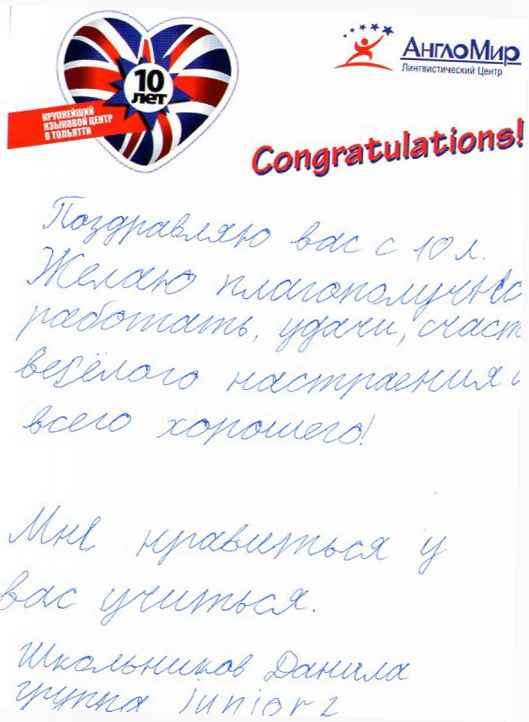 10
лет
КРУПНЕЙШИЙ
ЯЗЫКОВОЙ ЦЕНТР
В ТОЛЬЯТТИ
АнглоМир
Лингвистический Центр
Congratulations!
Поздравляю вас с 10 л.
Желаю плагополучно
работать, удачи, счаст
весёлого настраения и
всего хорошего!
Мне нравиться у
вас учиться.
Школьников Данила
группа Junior 2